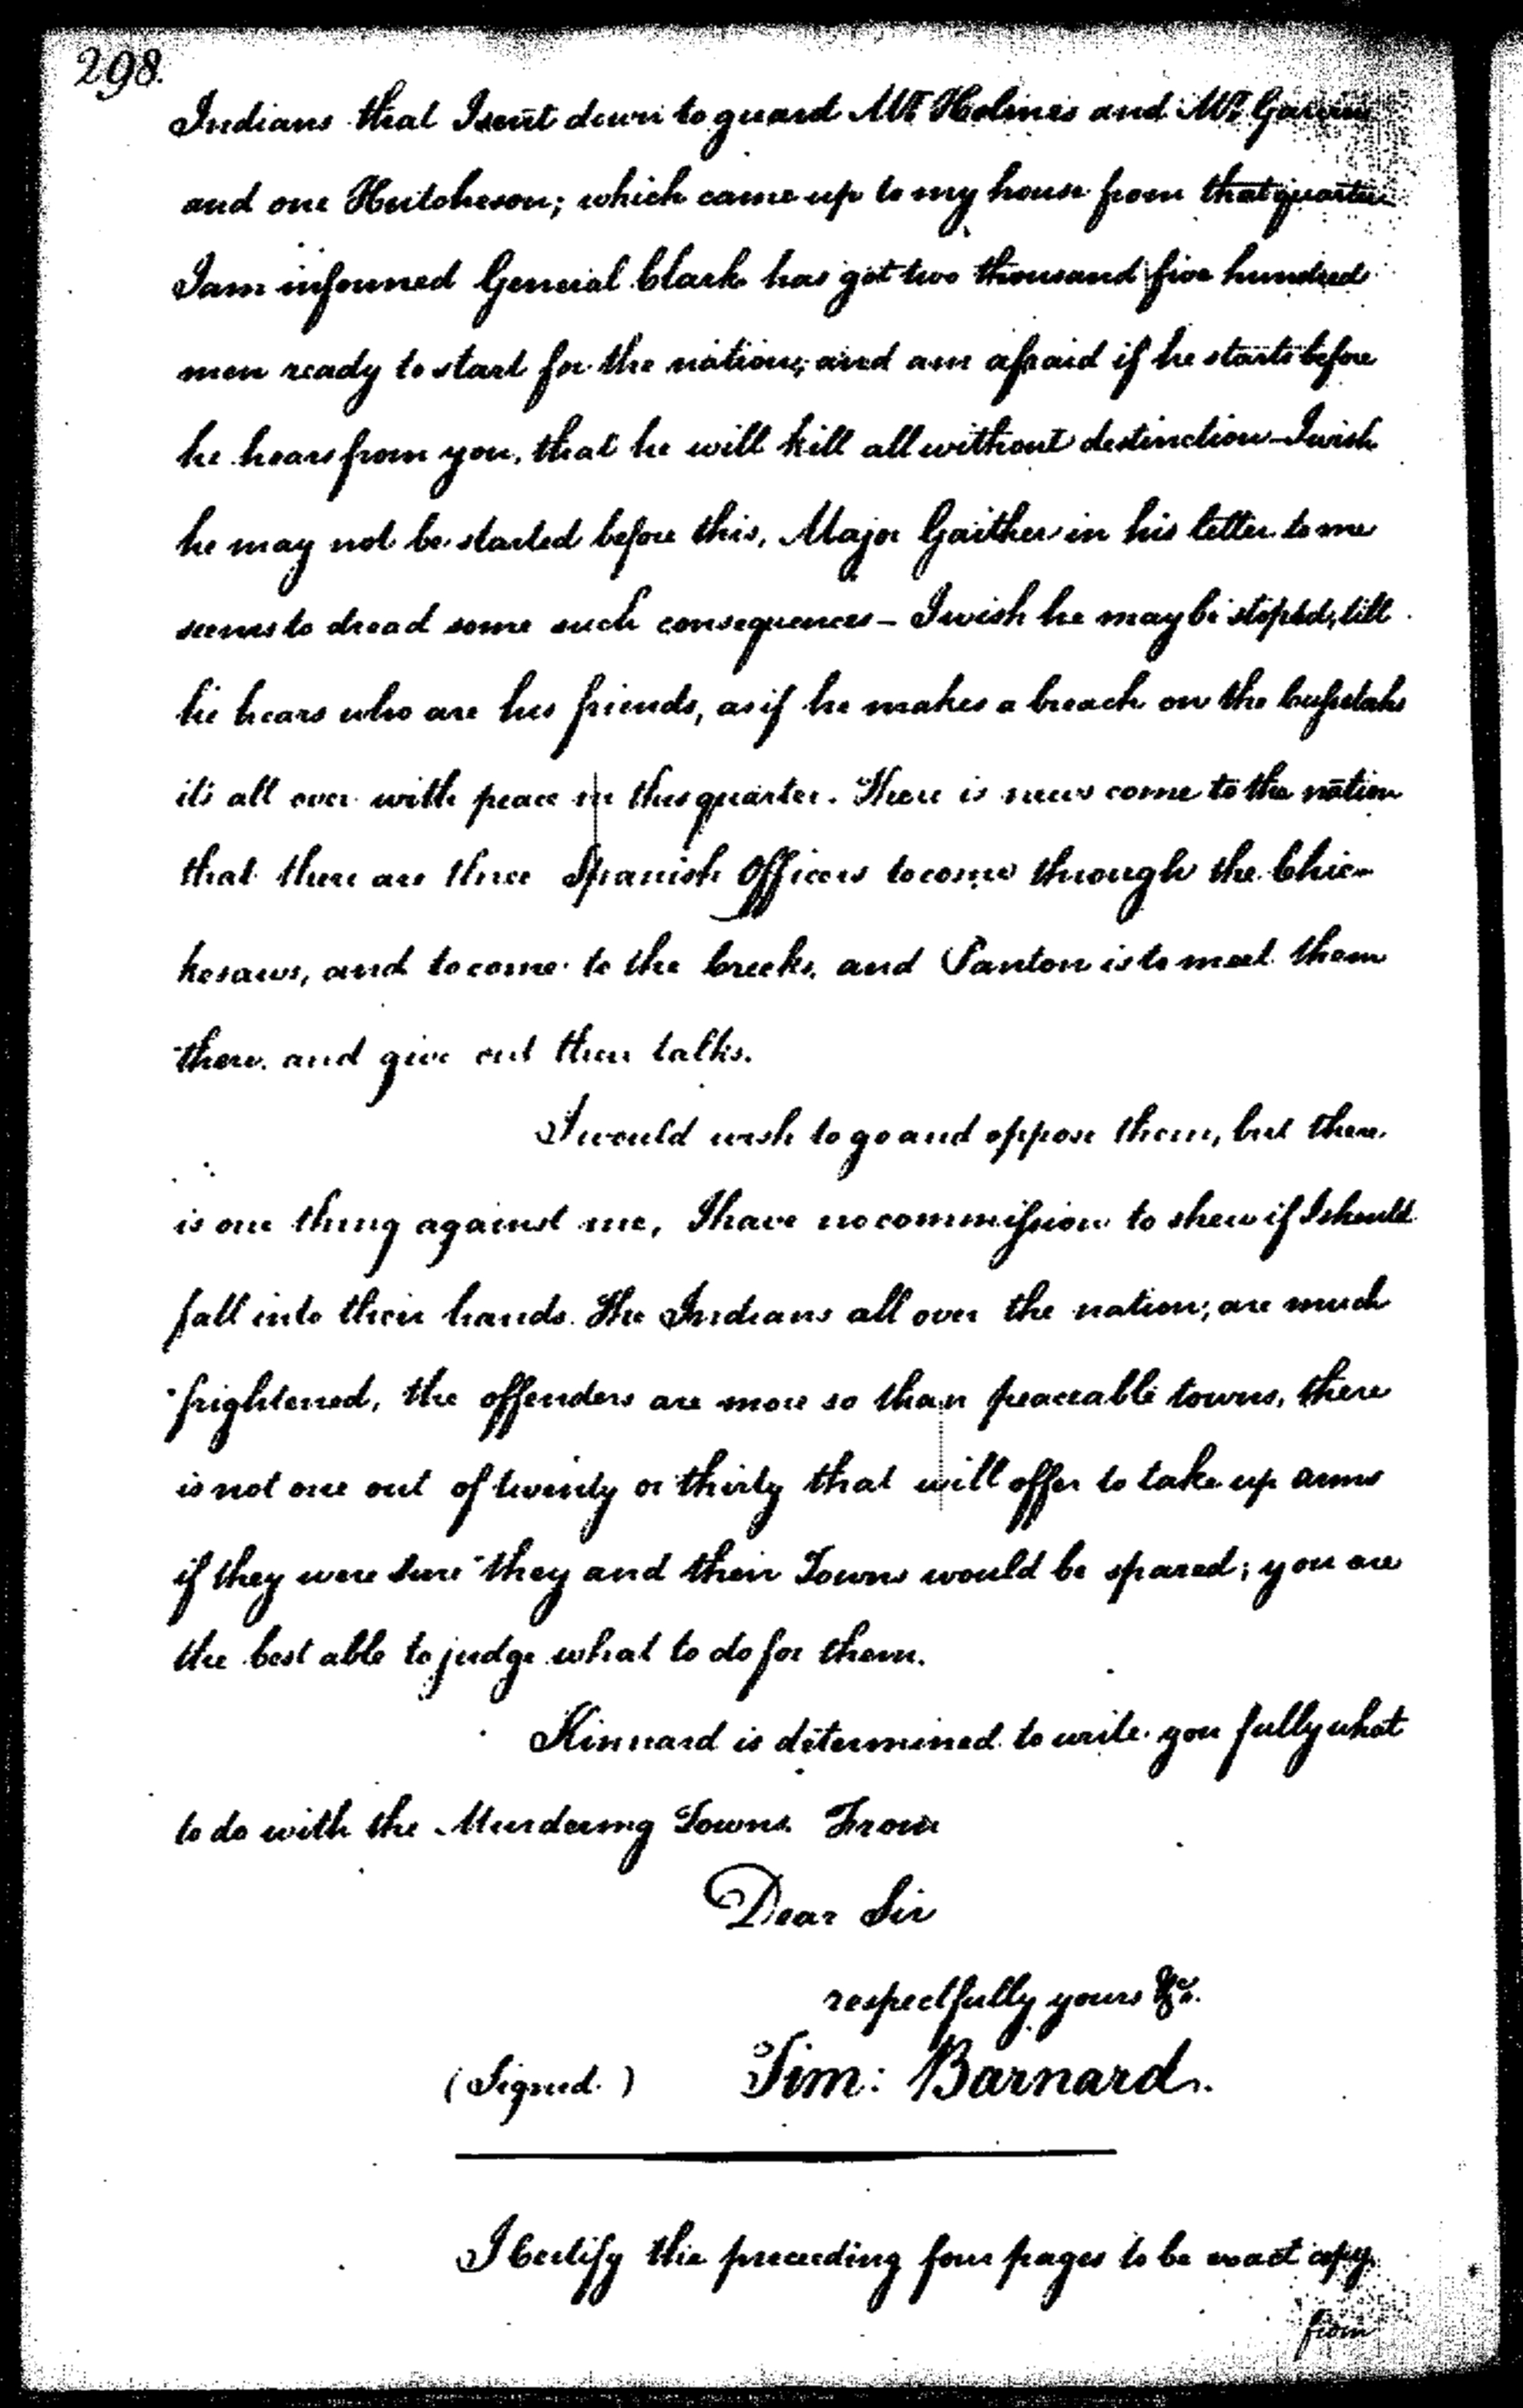 298.
Indians that I sent down to guard Mr. Holmes and Mr. Garvin
and one Hutcheson; which came up to my house from that quarter
I am informed General Clark has got two thousand five hundred
men ready to start for the nation, and am afraid if he starts before
he hears from you, that he will kill all without destinction - I wish
he may not be started before this, Major Gaither in his letter to me
seems to dread some such consequences - I wish he may be stoped, till
he hears who are his friends, as if he makes a breach on the Cussetahs
it's all over with peace in this quarter. There is news come to the nation
that there are three Spanish Officers to come through the Chic-
kesaws, and to come to the Creeks, and Panton is to meet them
there and give out their talks.
I would wish to go and oppose them, but there
is one thing against me, I have no commission to shew if I should
fall into their hands. The Indians all over the nation, are much
frightened, the offenders are more so than peaceable towns, there
is not one out of twenty or thirty that will offer to take up arms
if they were sure they and their Towns would be spared; you are
the best able to judge what to do for them.
Kinnard is determined to write you fully what
to do with the Murdering Towns. From
Dear Sir
respectfully yours &c.
(Signed.) Tim: Barnard.
I Certify the preceeding four pages to be exact copy
from